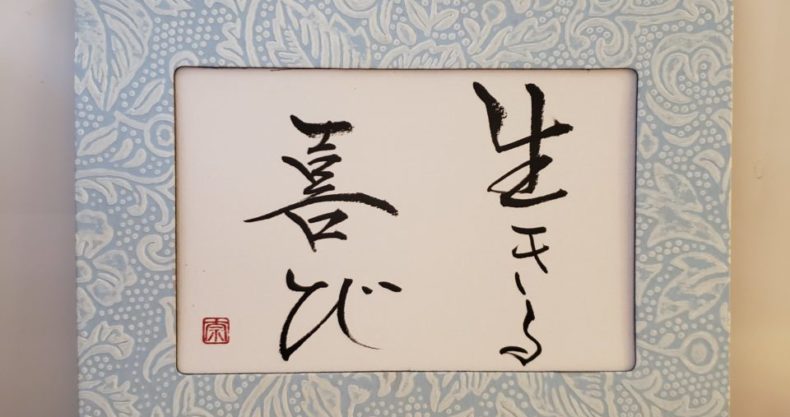 生きる
喜び